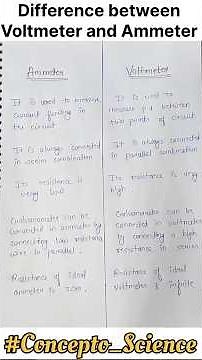 Difference between
Voltmeter and Ammeter
Ammeter
It is used to measure
current flowing in
the circuit
It is always connected
in series combination
Its resistance is
very low
Galvanometer can be
converted in ammeter by
connecting low resistance
wire in parallel.
Resistance of ideal
ammeter is zero.
Voltmeter
It is used to
measure p.d between
two points of circuit
It is always connected
in parallel combination
Its resistance is very
high
Galvanometer can be
converted in voltmeter
by connecting a high
resistance in series
Resistance of ideal
voltmeter is infinite
#Concepto_Science